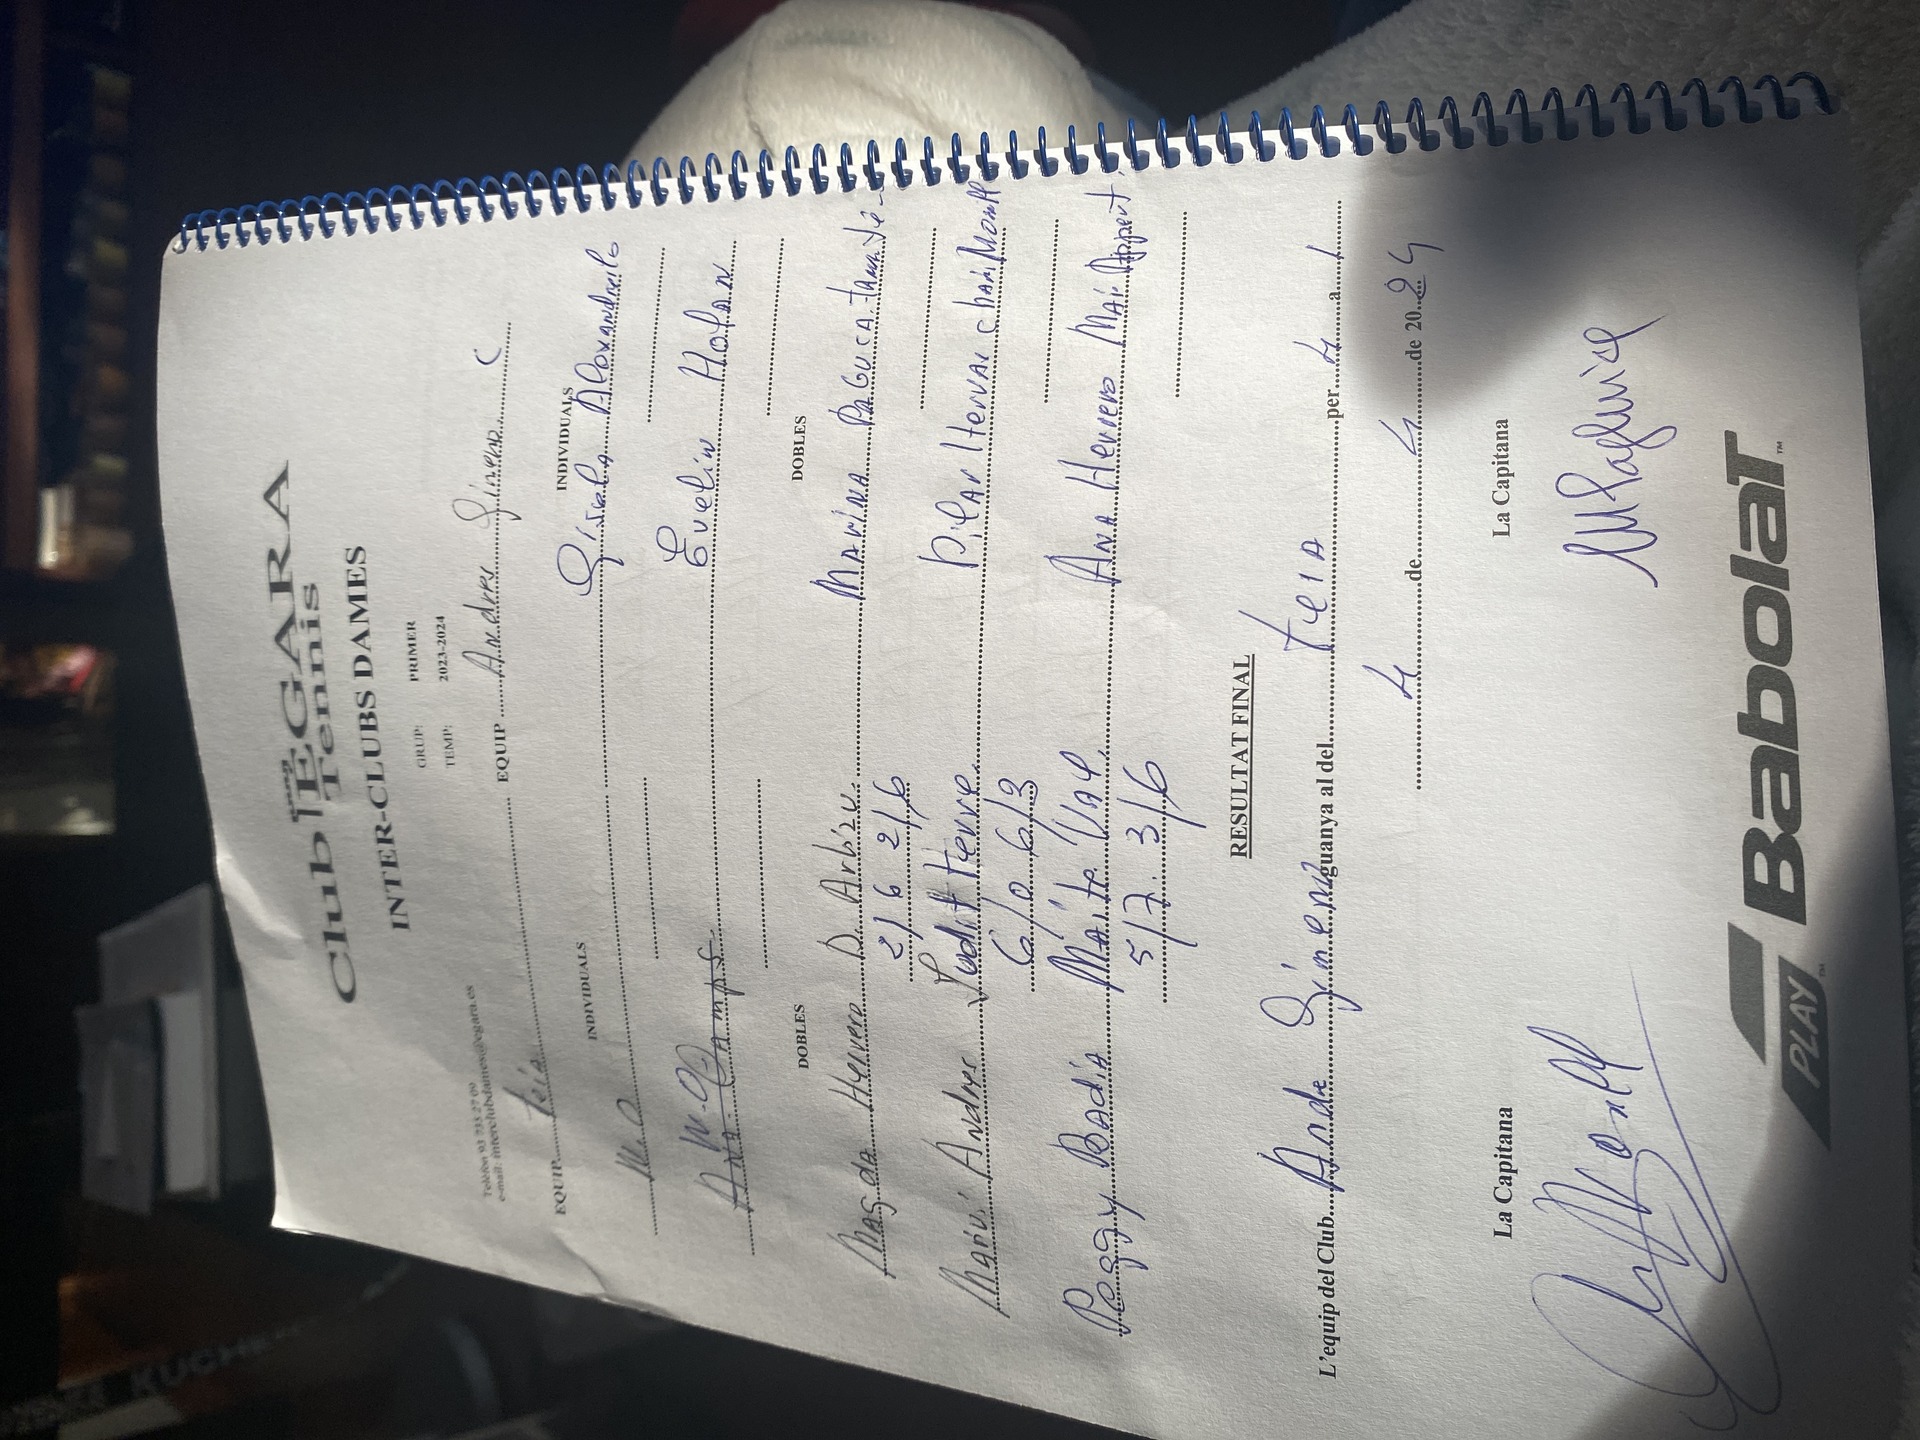 Club EGARA
Tennis
INTER-CLUBS DAMES
GRUP: PRIMER
TEMP: 2023-2024
Telèfon 93 733 27 09
e-mail: interclubdames@egara.es
EQUIP Teià EQUIP Andres Gimeno C
INDIVIDUALS INDIVIDUALS
W.O Gisela Alexandrelo
W.O
Ana Camps Evelin Holan
DOBLES DOBLES
Magda Herrero D. Arbizu Marina Paguca
2/6 2/6
Maru Andres Judit Ferre Pilar Hervas Chari Monll
6/0 6/3
Peggy Badia Maite Val Ana Herrero Mai Appert
5/7 3/6
RESULTAT FINAL
L'equip del Club Andre Gimeno guanya al del Teia per 4 a 1
4 de 4 de 20 24
La Capitana La Capitana
PLAY Babolat